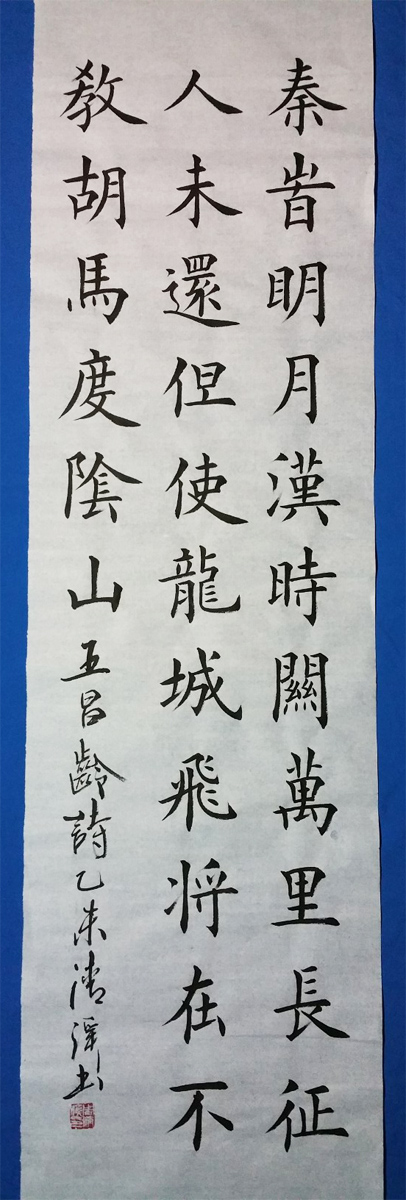 秦旹明月漢時關萬里長征
人未還但使龍城飛将在不
教胡馬度陰山王昌齡詩乙未清書